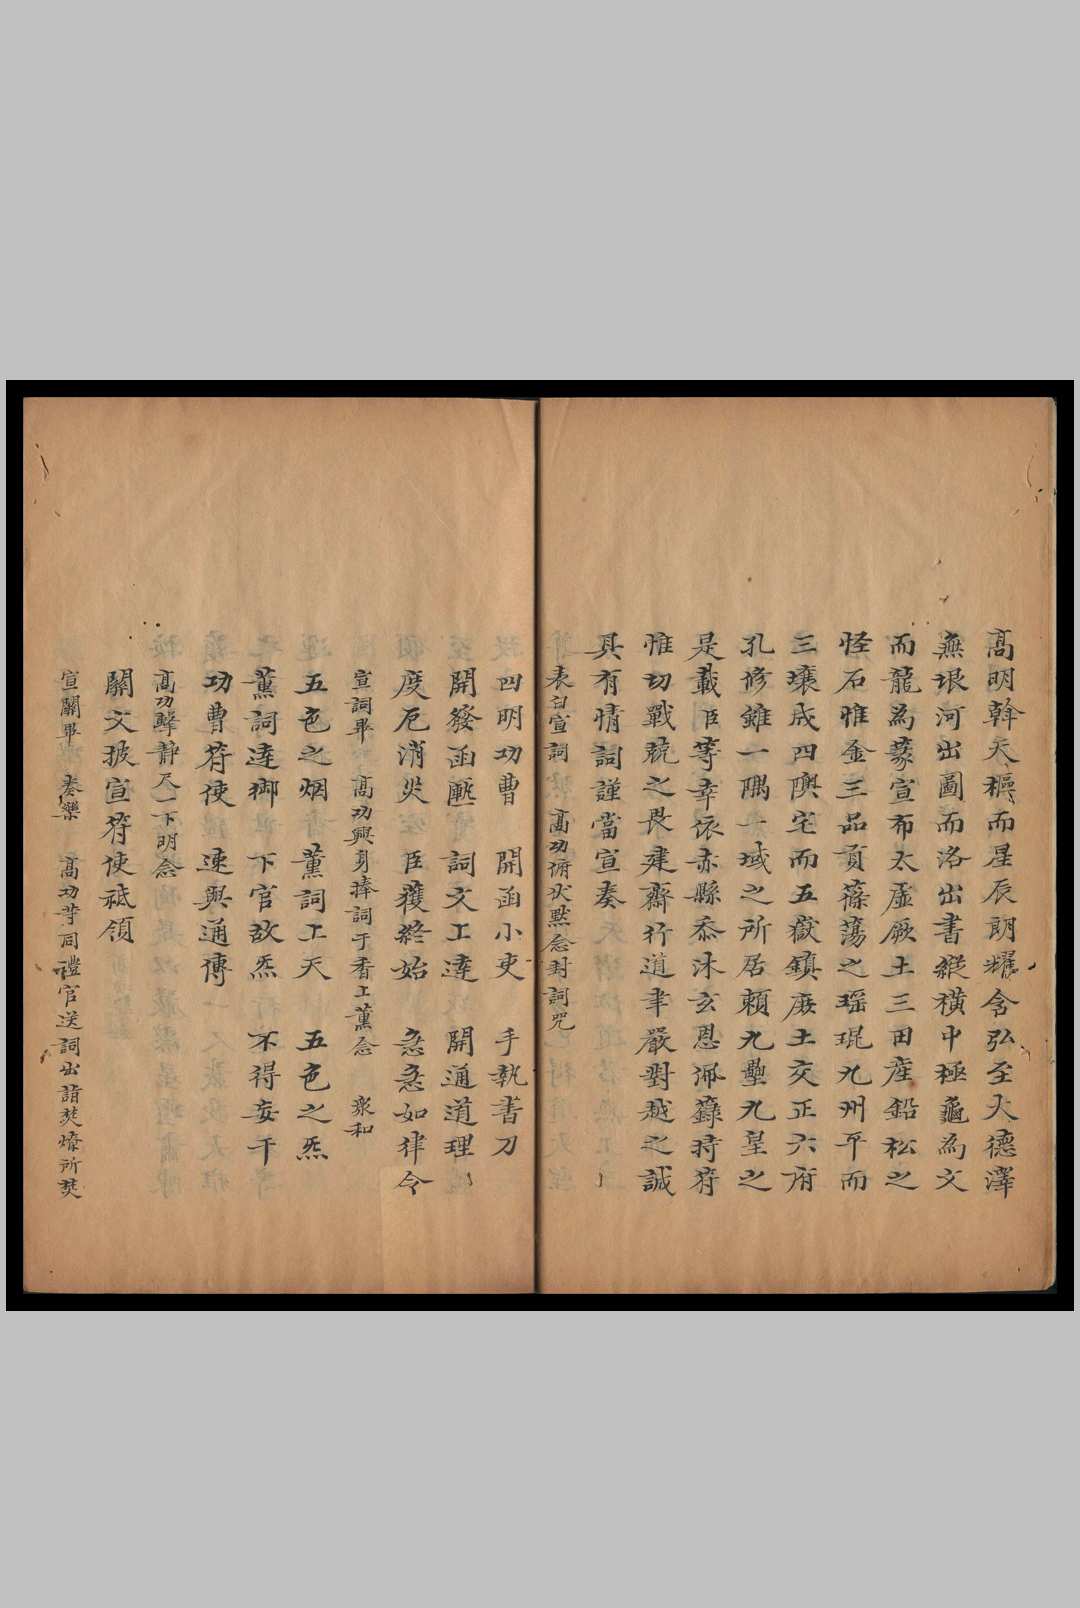 高明斡天樞而星辰朗耀含弘至大德澤
無垠河出圖而洛出書縱橫中極龜為文
而龍為篆宣布太虛厥土三田產鉛松之
怪石惟金三品貢篠蕩之瑶琨九州平而
三壤成四隩宅而五嶽鎮庶土交正六府
孔修雖一隅一域之所居賴九壘九皇之
是載臣等幸依赤縣忝沐玄恩佩籙持符
惟切戰兢之畏建齋行道聿嚴對越之誠
具有情詞謹當宣奏
表白宣詞 高功俯伏默念封詞咒
四明功曹 開函小吏 手執書刀
開發函匭 詞文上達 開通道理
度厄消災 臣獲終始 急急如律令
宣詞畢 高功興身捧詞于香上薰念 衆和
五色之烟 薰詞上天 五色之炁
薰詞達御 下官故炁 不得妄干
功曹符使 速與通傳
高功擊靜尺一下明念
關文披宣符使祗領
宣關畢 奏樂 高功等同禮官送詞出詣焚燎所焚